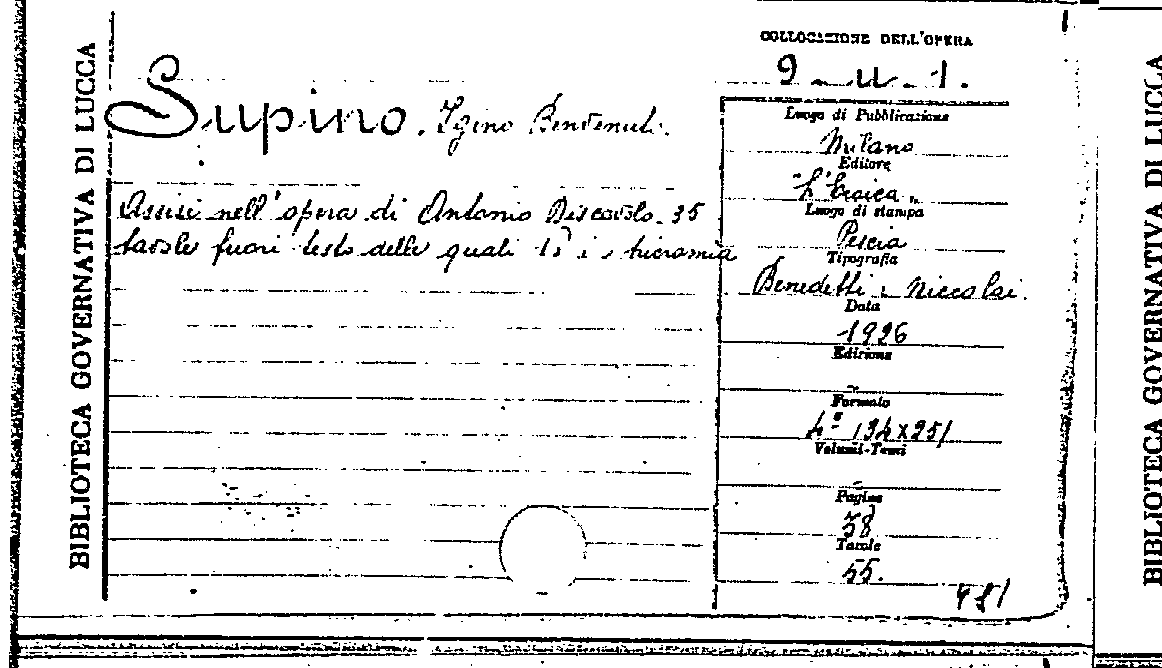 BIBLIOTECA GOVERNATIVA DI LUCCA
COLLOCAZIONE DELL'OPERA
9-u-1.
Supino. Igino Benvenuto.
Assisi nell'opera di Antonio Discovolo. 35
tavole fuori testo delle quali 15 in tricromia
Luogo di Pubblicazione
Milano
Editore
"L'Eroica"
Luogo di stampa
Pescia
Tipografia
Benedetti e Niccolai.
Data
1926
Edizione
Formato
4º (34x25)
Volumi-Tomi
Pagine
58
Tavole
55.
BIBLIOTECA GOVERNATIVA DI LUCCA